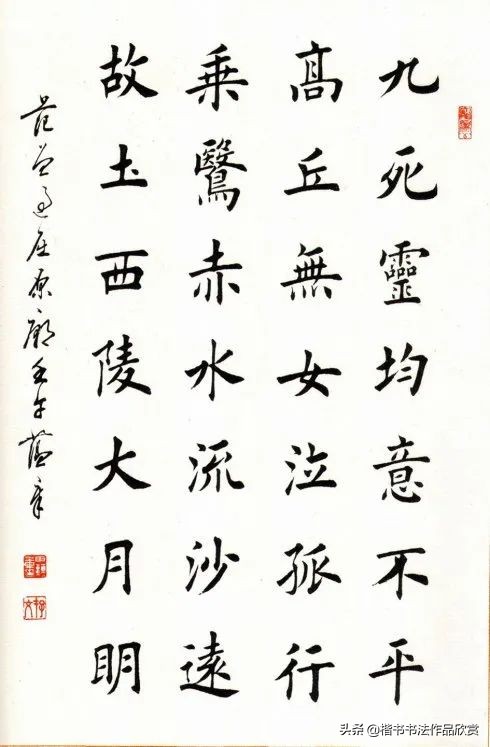 九死靈均意不平
高丘無女泣孤行
乘鷖赤水流沙遠
故土西陵大月明
屈原廟壬午
头条 @楷书书法作品欣赏